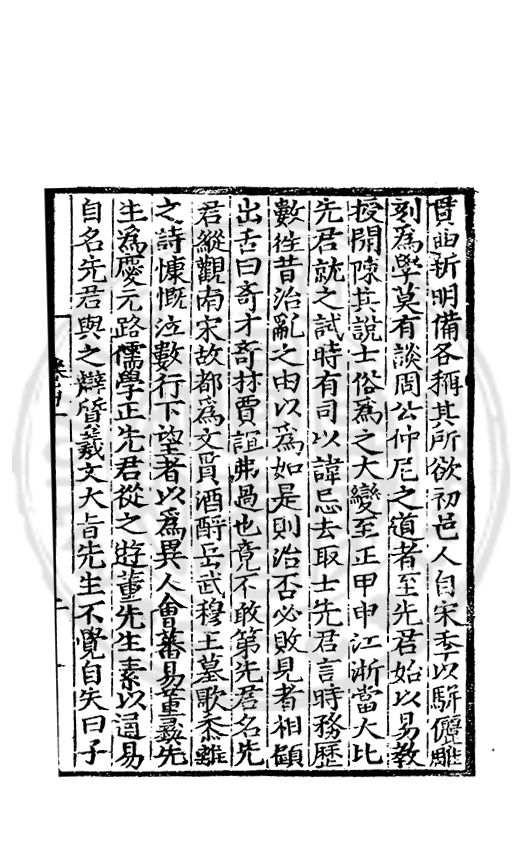 貫曲折明備各稱其所欲初邑人自宋季以駢儷雕
刻為學莫有談周公仲尼之道者至先君始以易教
授開陳其說士俗為之大變至正甲申江浙當大比
先君就之試時有司以諱忌去取士先君言時務歷
數往昔治亂之由以為如是則治否必敗見者相顧
出舌曰奇才奇才賈誼弗過也竟不敢第先君名先
君縱觀南宋故都為文買酒酹岳武穆王墓歌黍離
之詩慷慨泣數行下望者以為異人會蕃易董彞先
生為慶元路儒學正先君從之遊董先生素以通易
自名先君與之辯質羲文大旨先生不覺自失曰子